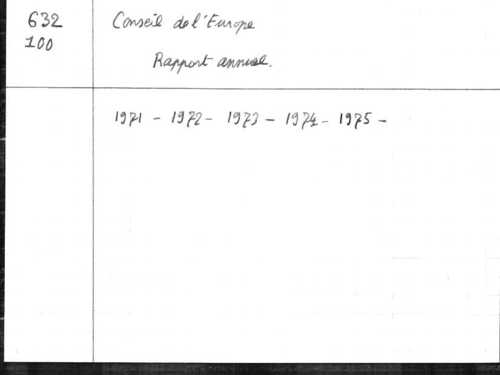 632
100
Conseil de l'Europe
Rapport annuel.
1971 - 1972 - 1973 - 1974 - 1975 -